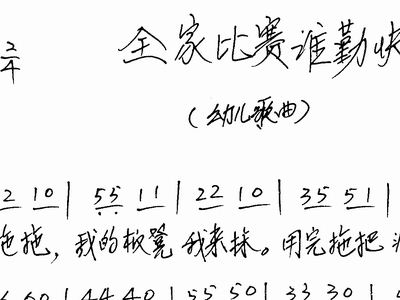 2/4
全家比赛谁勤快
(幼儿歌曲)
2 10 | 55 11 | 22 10 | 35 51 |
拖拖,我的板凳我来搽。用完拖把
60 | 44 40 | 55 50 | 33 30 |